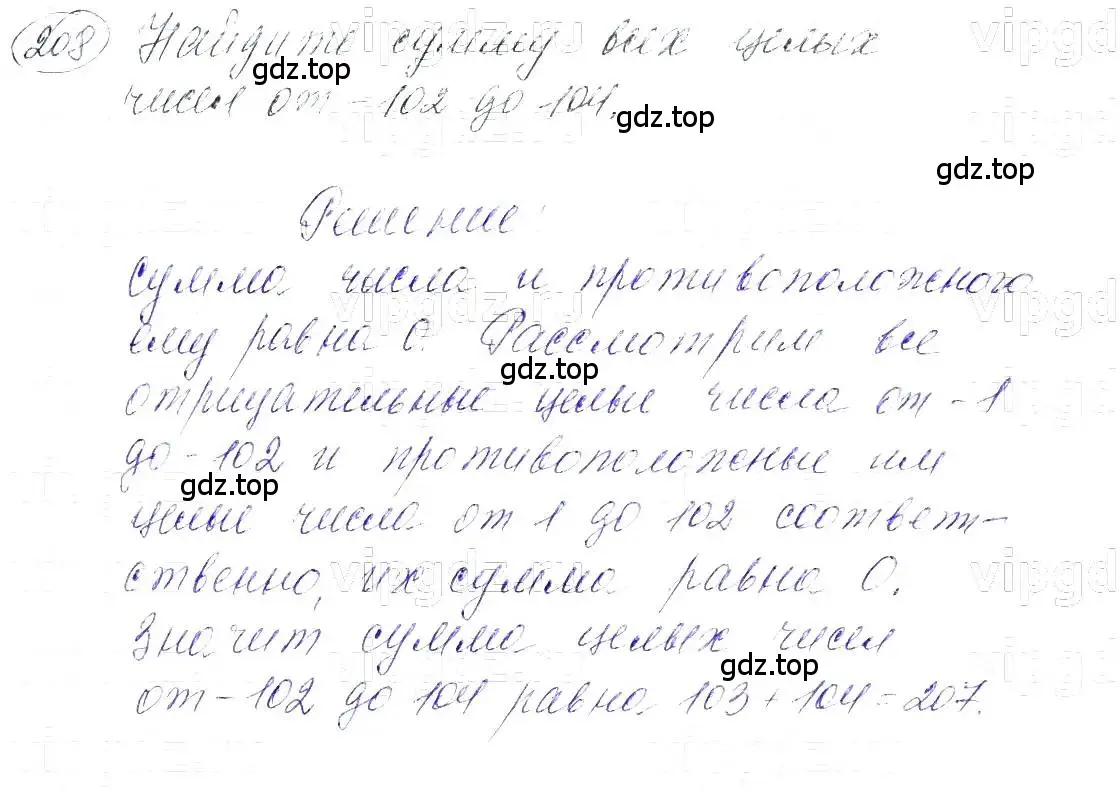 208 Найдите сумму всех целых
чисел от -102 до 104.
Решение:
сумма числа и противоположного
ему равна 0. Рассмотрим все
отрицательные целые числа от -1
до -102 и противоположные им
целые числа от 1 до 102 соответ-
ственно, их сумма равна 0.
Значит сумма целых чисел
от -102 до 104 равна 103 + 104 = 207.
gdz.top
gdz.top
gdz.top
gdz.top
gdz.top
gdz.top